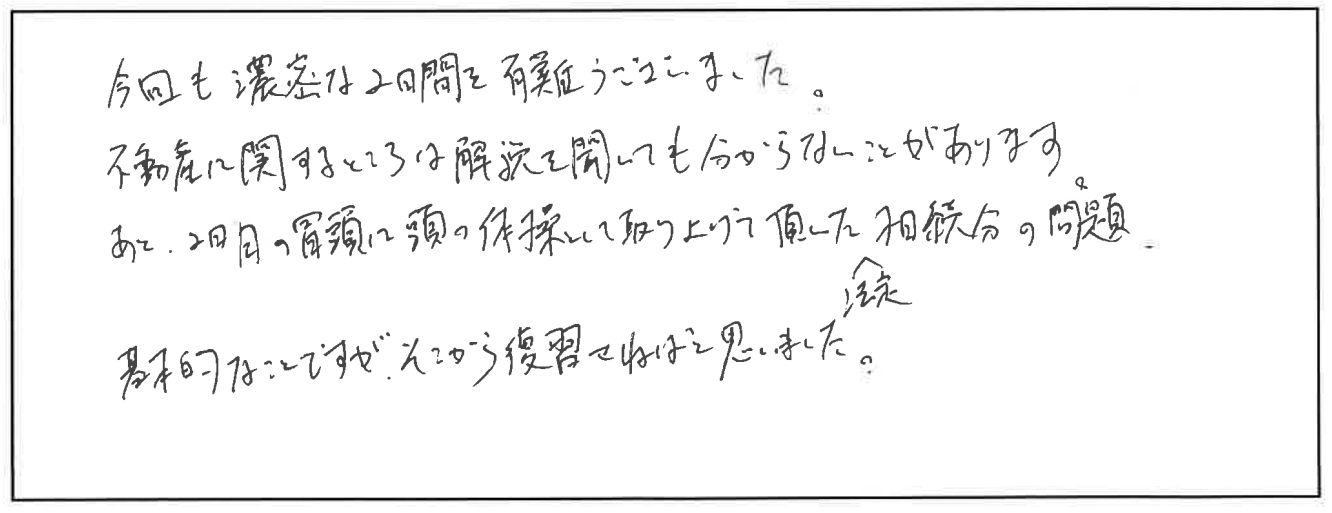 今回も濃密な2日間を有難うございました。
不動産に関するところは解説を聞いても分からないことがあります。
あと、2日目の冒頭に頭の体操として取り上げて頂いた法定相続分の問題、
基本的なことですが、そこから復習せねばと思いました。